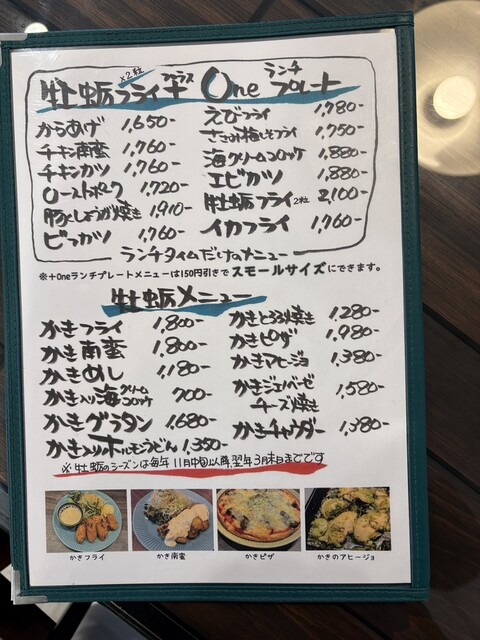 ×2粒 プラス ランチ
牡蛎フライ+Oneプレート
からあげ 1,650-
チキン南蛮 1,760-
チキンカツ 1,760-
ローストポーク 1,720-
豚しょうが焼き 1,910-
ビフカツ 1,760-
えびフライ 1,780-
ささみ梅しそフライ 1,750-
海クリームコロッケ 1,880-
エビカツ 1,880-
牡蛎フライ2粒 2,100-
イカフライ 1,760-
ランチタイムだけのメニュー
※+Oneランチプレートメニューは150円引きでスモールサイズにできます。
牡蛎メニュー
かきフライ 1,800-
かき南蛮 1,800-
かきめし 1,180-
かき入り海クリームコロッケ 700-
かきグラタン 1,680-
かき入りホルモンうどん 1,350-
かきとろろ焼き 1,280-
かきピザ 1,980-
かきアヒージョ 1,380-
かきジェノベーゼ
チーズ焼き 1,580-
かきチャウダー 1,380-
※牡蛎のシーズンは毎年11月中旬以降翌年3月末日までです
かきフライ
かき南蛮
かきピザ
かきのアヒージョ